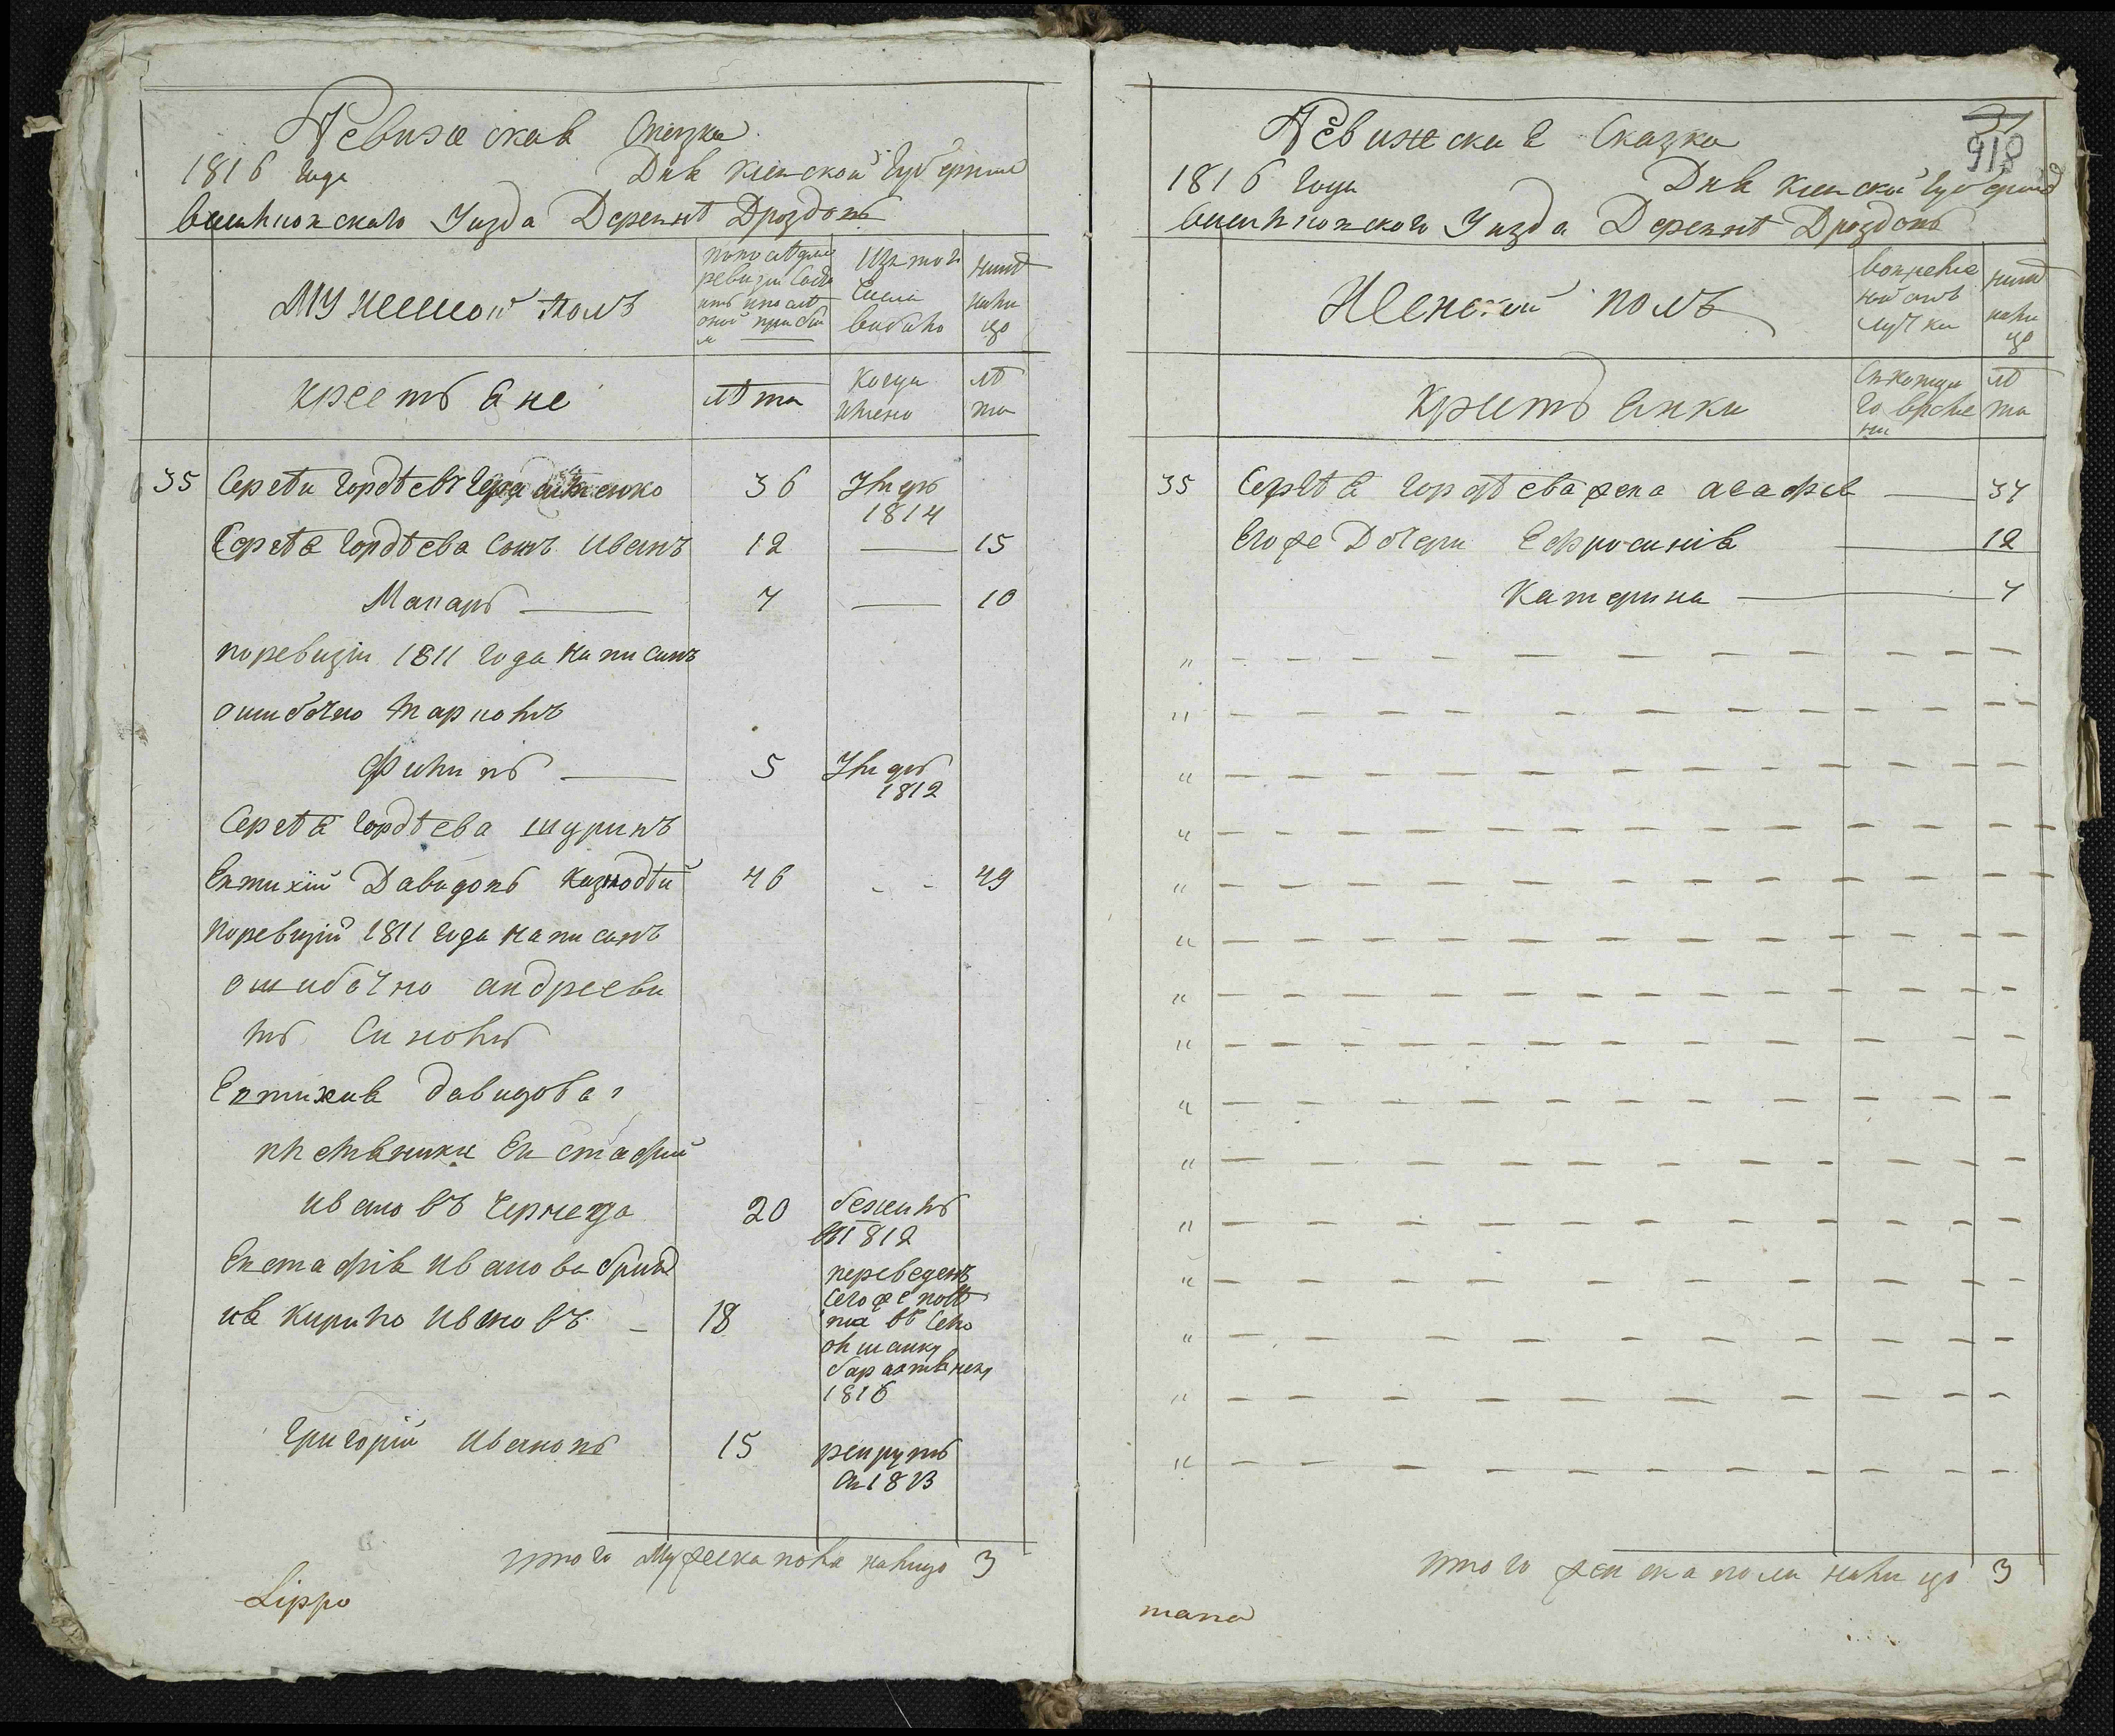 Ревижская Сказка
1816 Года Для Киевской Губернии
Васильковскаго Уезда Деревнѣ Дроздовъ
Мужеской Полъ
По последней
ревизіи Состо
ялъ и после
оной прибы
л
Изъ того
Числа
выбыло
нынѣ
нали
цо
крестьяне
лѣта
Когда
имено
лѣ
та
35 Сергѣй Гордѣевъ 36 Умеръ
1814
Сергѣя Гордѣева Сынъ Иванъ 12 — 15
Макаръ — 7 — 10
поревизіи 1811 года написанъ
ошибочно Карпомъ
Филипъ — 5 Умеръ
1812
Сергѣя Гордѣева шуринъ
Евтихій Давидовъ 46 - - 49
Поревизій 1811 года написанъ
ошибочно андрееви
мъ Синомъ
Евтихия давидова
племянники Евстафий
ивановъ Чернега 20 бежилъ
в1812
Евстафія иванова брат
ия Кирило Ивановъ - 18
переведенъ
сего же повѣ
та въ Село
олшанку
1816
Григорій Ивановъ 15 рекрутъ
в 1813
итого Мужеска пола налицо 3
Lippo
31
918
Ревижская Сказка
1816 Года Для Киевской Губерний
Васильковского Уизда Деревнѣ Дроздовъ
Женский полъ
Вовреме
ной отъ
лучки
нынѣ
нали
цо
Крестьянки
Скотора
го време
ни
лѣ
та
35 Сергѣя гордѣева жена агафія — 37
Егоже Дочери Ефросинія — 12
Катерина — 7
итого женска пола налицо 3
mana